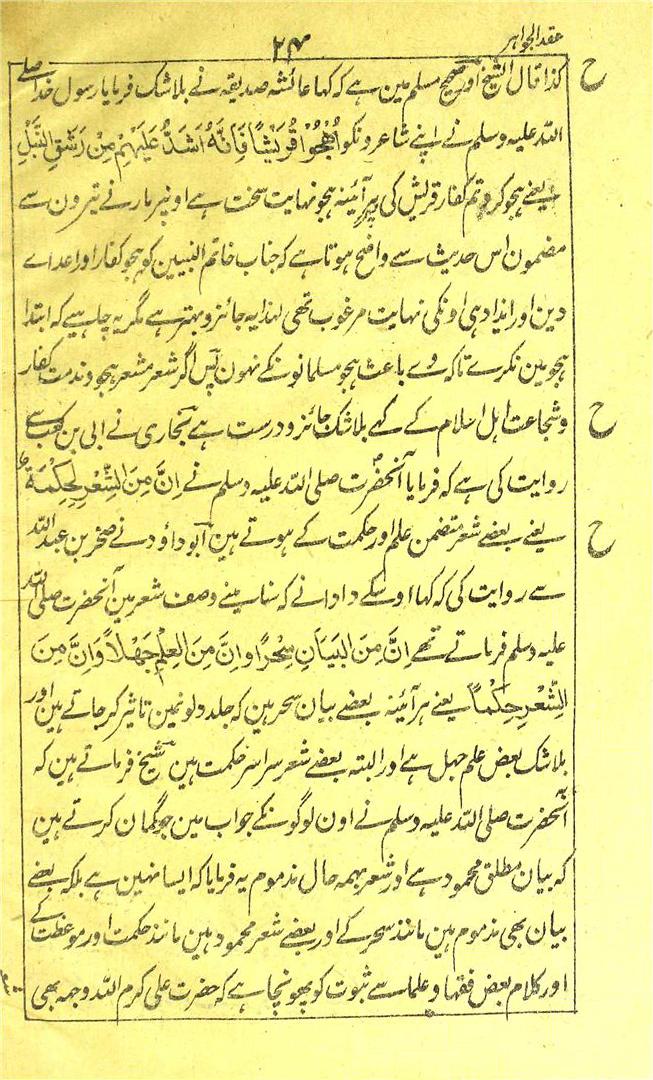 عقد الجواہر
۲۴
ح
کذا قال الشیخ اور صحیح مسلم مین ہے کہ کہا عائشہ صدیقہ نے بلاشک فرمایا رسول خدا صلے
اللہ علیہ وسلم نے اپنے شاعرونکو اُھْجُوْا قُرَیْشًا فَاِنَّہٗ اَشَدُّ عَلَیْہِمْ مِنْ رَشْقِ النَّبْلِ
یعنے ہجو کرو تم کفار قریش کی ہر آئینہ ہجو نہایت سخت ہے اونپر مارنے تیرون سے
مضمون اس حدیث سے واضح ہوتا ہے کہ جناب خاتم النبیین کو ہجو کفار اور اعداے
دین اور ایذا دہی اونکی نہایت مرغوب تھی لہذا یہ جائز و بہتر ہے مگر یہ چاہیے کہ ابتدا
ہجو مین نکرے تاکہ وے باعث ہجو مسلمانونکے نہون پس اگر شعر مشعر ہجو و ندمت کفار
ح
و شجاعت اہل اسلام کے کہے بلاشک جائز و درست ہے بخاری نے ابی بن کعب سے
روایت کی ہے کہ فرمایا آنحضرت صلی اللہ علیہ وسلم نے اِنَّ مِنَ الشِّعْرِ لَحِکْمَۃً
ح
یعنے بعضے شعر متضمن علم اور حکمت کے ہوتے ہین ابو داؤد نے صخر بن عبد اللہ
سے روایت کی کہ کہا اوسکے دادا نے کہ سنا مینے وصف شعر مین آنحضرت صلی اللہ
علیہ وسلم فرماتے تھے اِنَّ مِنَ الْبَیَانِ سِحْرًا وَاِنَّ مِنَ الْعِلْمِ جَھْلًا وَاِنَّ مِنَ
الشِّعْرِ حِکَمًا یعنے ہر آئینہ بعضے بیان سحر ہین کہ جلد دلونمین تاثیر کر جاتے ہین اور
بلاشک بعض علم جہل ہے اور البتہ بعضے شعر سراسر حکمت ہین شیخ فرماتے ہین کہ
آنحضرت صلی اللہ علیہ وسلم نے اون لوگونکے جواب مین جو گمان کرتے ہین
کہ بیان مطلق محمود ہے اور شعر بہمہ حال مذموم یہ فرمایا کہ ایسا نہین ہے بلکہ بعضے
بیان بھی مذموم ہین مانند سحر کے اور بعضے شعر محمود ہین مانند حکمت اور موعظت کے
اور کلام بعض فقہا و علما سے ثبوت کو پھونچا ہے کہ حضرت علی کرم اللہ وجہہ بھی